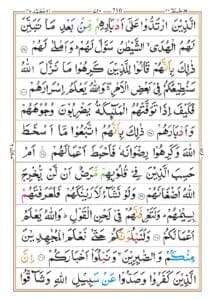 710
الَّذِيْنَ ارْتَدُّوْا عَلٰٓى اَدْبَارِهِمْ مِّنْۢ بَعْدِ مَا تَبَيَّنَ
لَهُمُ الْهُدَى ۙ الشَّيْطٰنُ سَوَّلَ لَهُمْ ؕ وَاَمْلٰى لَهُمْ
ذٰلِكَ بِاَنَّهُمْ قَالُوْا لِلَّذِيْنَ كَرِهُوْا مَا نَزَّلَ اللّٰهُ
سَنُطِيْعُكُمْ فِيْ بَعْضِ الْاَمْرِ ۚ وَاللّٰهُ يَعْلَمُ اِسْرَارَهُمْ
فَكَيْفَ اِذَا تَوَفَّتْهُمُ الْمَلٰٓئِكَةُ يَضْرِبُوْنَ وُجُوْهَهُمْ
وَاَدْبَارَهُمْ ذٰلِكَ بِاَنَّهُمُ اتَّبَعُوْا مَآ اَسْخَطَ
اللّٰهَ وَكَرِهُوْا رِضْوَانَهٗ فَاَحْبَطَ اَعْمَالَهُمْ اَمْ
حَسِبَ الَّذِيْنَ فِيْ قُلُوْبِهِمْ مَّرَضٌ اَنْ لَّنْ يُّخْرِجَ
اللّٰهُ اَضْغَانَهُمْ وَلَوْ نَشَآءُ لَاَرَيْنٰكَهُمْ فَلَعَرَفْتَهُمْ
بِسِيْمٰهُمْ ؕ وَلَتَعْرِفَنَّهُمْ فِيْ لَحْنِ الْقَوْلِ ؕ وَاللّٰهُ يَعْلَمُ
اَعْمَالَكُمْ وَلَنَبْلُوَنَّكُمْ حَتّٰى نَعْلَمَ الْمُجٰهِدِيْنَ
مِنْكُمْ وَالصّٰبِرِيْنَ ۙ وَنَبْلُوَا۟ اَخْبَارَكُمْ اِنَّ
الَّذِيْنَ كَفَرُوْا وَصَدُّوْا عَنْ سَبِيْلِ اللّٰهِ وَشَآقُّوا